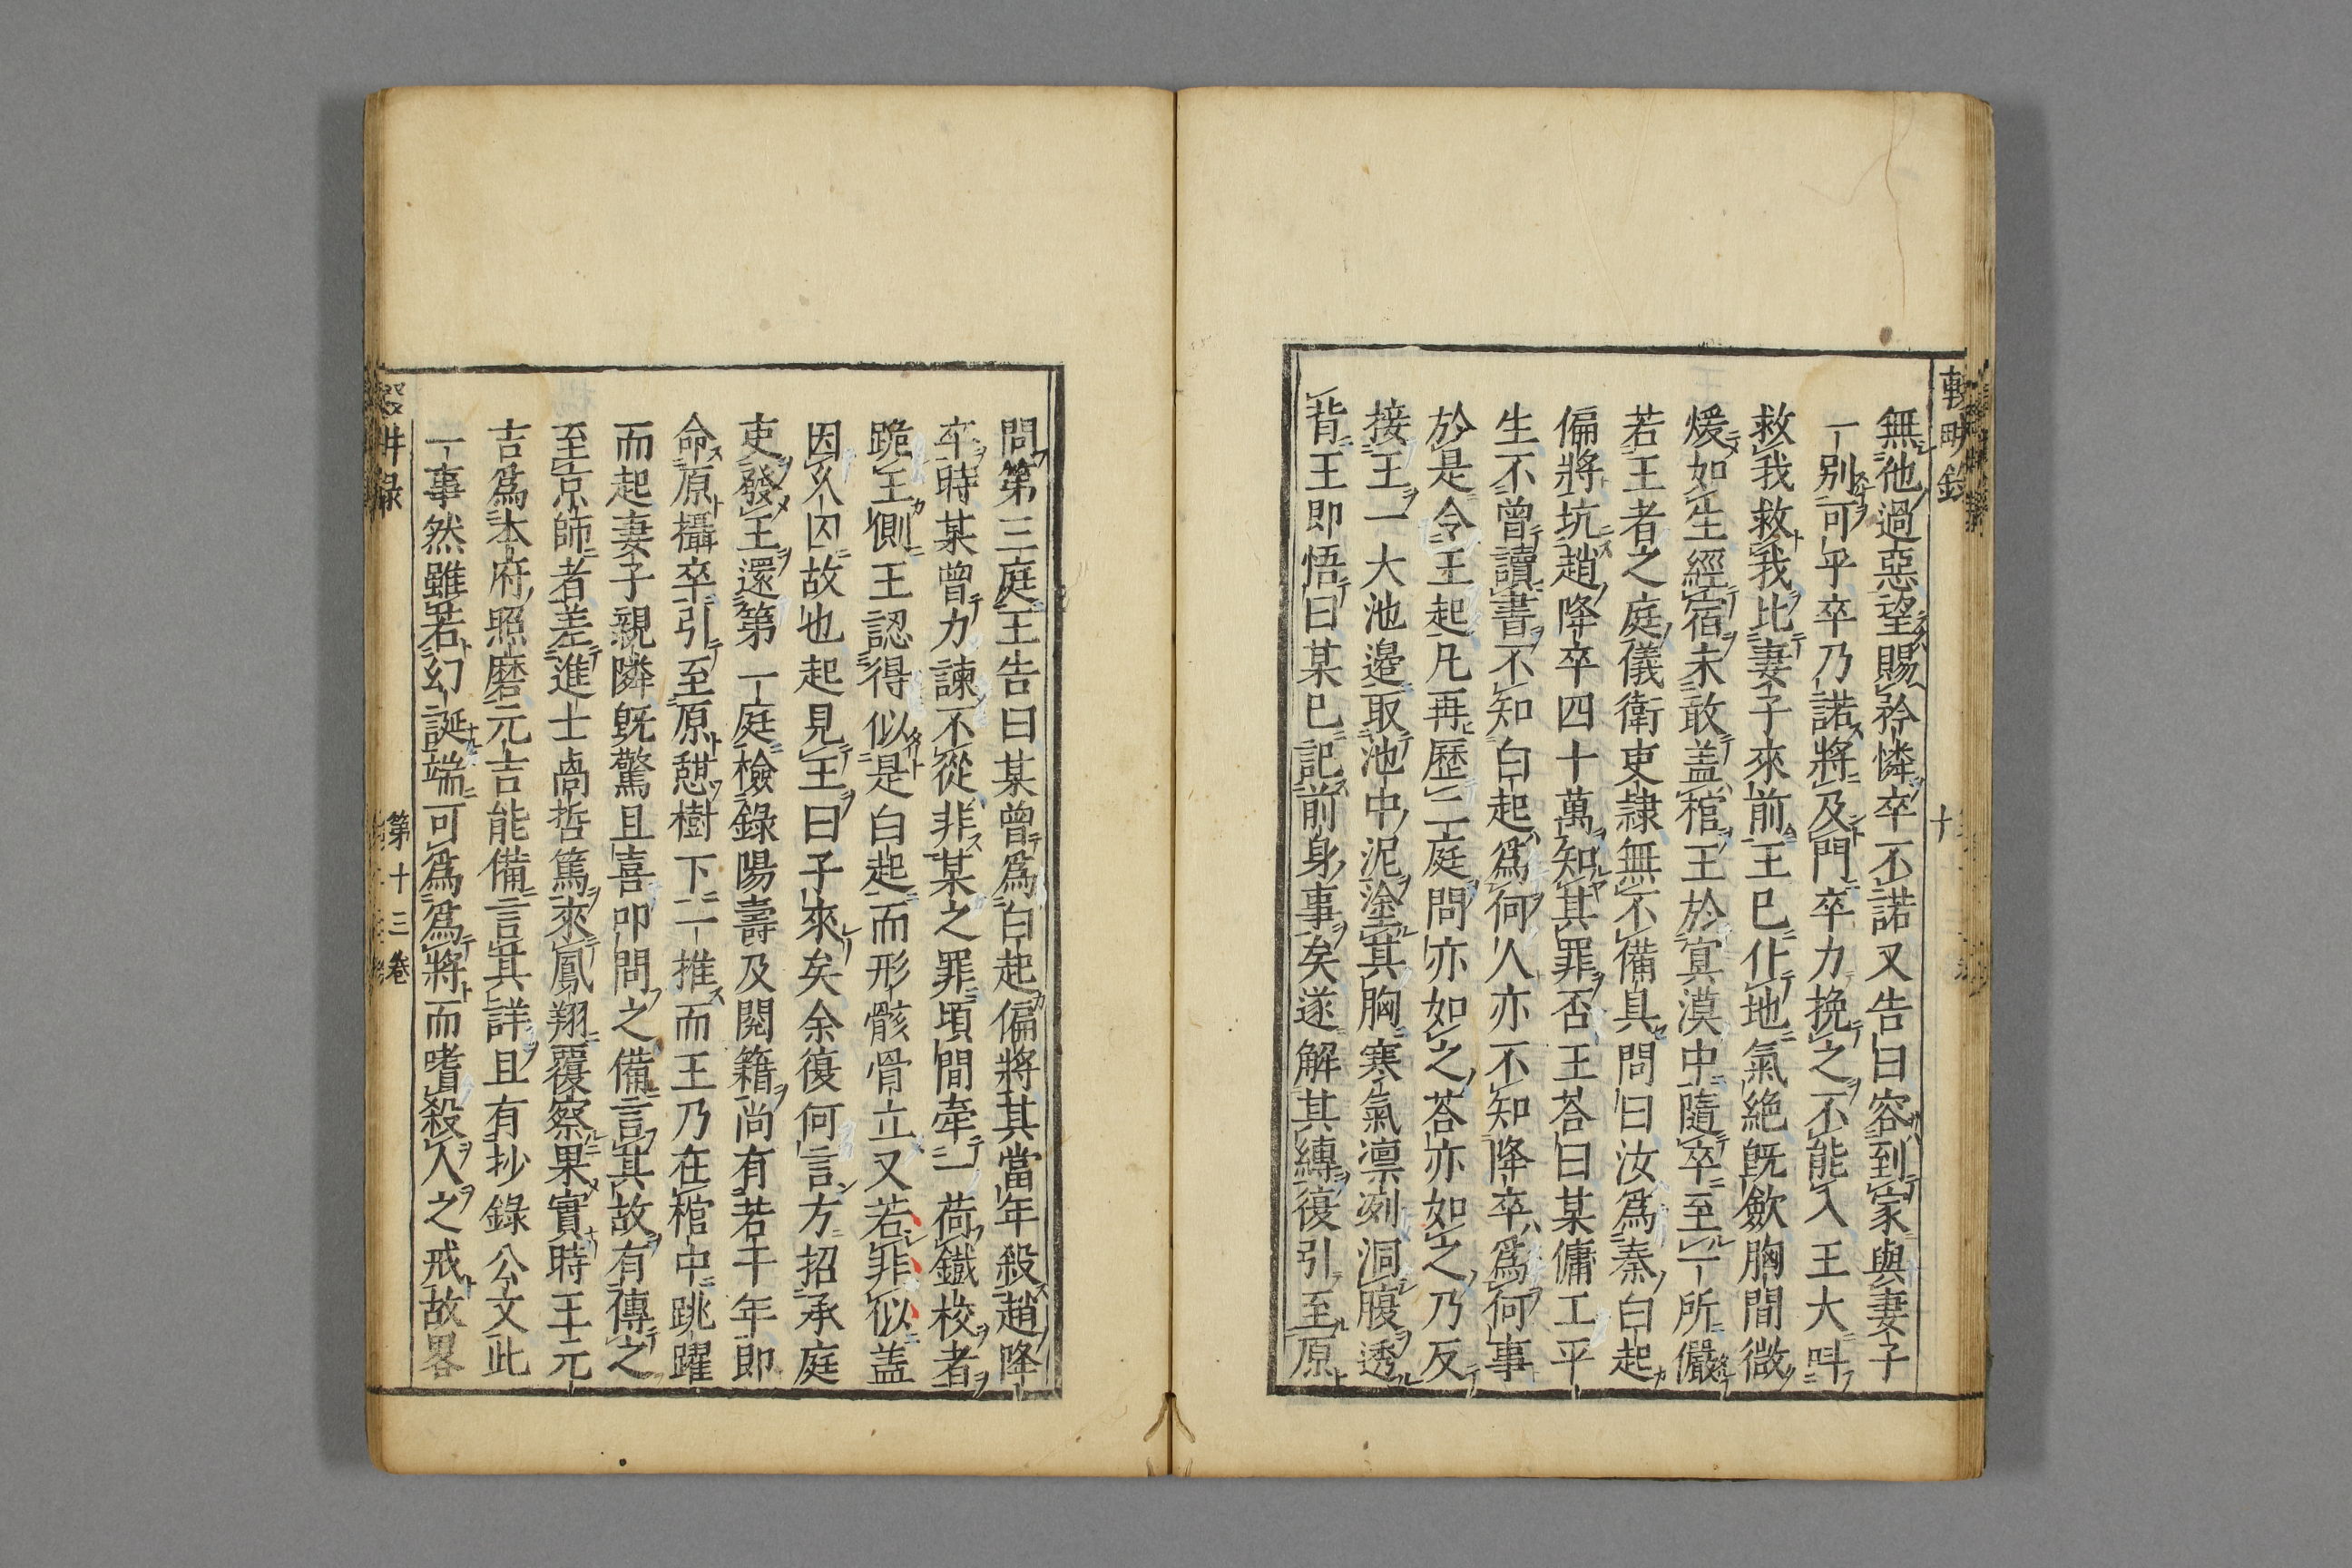 無他過惡望賜矜憐卒不諾又告曰容到家與妻子
一别可乎卒乃諾將及門卒力挽之不能入王大呌
救我救我比妻子來前王已仆地氣絶旣斂胸間微
煖如生經宿未敢盖棺王於㝠漠中隨卒至一所儼
若王者之庭儀衛吏隷無不備具問曰汝爲秦白起
偏將坑趙降卒四十萬知其罪否王荅曰某傭工平
生不曾讀書不知白起爲何人亦不知降卒爲何事
於是令王起凡再歷二庭問亦如之荅亦如之乃反
接王一大池邉取池中泥塗其胸寒氣凛冽洞腹透
背王即悟曰某已記前身事矣遂解其縛復引至原
問第三庭王告曰某曾爲白起偏將其當年殺趙降
卒時某曾力諫不從非某之罪頃間牽一荷鐵校者
跪王側王認得似是白起而形骸骨立又若非似盖
因久囚故也起見王曰子來矣余復何言方招承庭
吏發王還第一庭檢錄陽壽及閱籍尚有若干年即
命原攝卒引至原憇樹下一推而王乃在棺中跳躍
而起妻子親隣旣驚且喜叩問之備言其故有傳之
至京師者差進士卨哲篤來鳳翔覆察果實時王元
吉爲本府照磨元吉能備言其詳且有抄錄公文此
一事然雖若幻誕端可爲爲將而嗜殺人之戒故畧
十
第十三卷